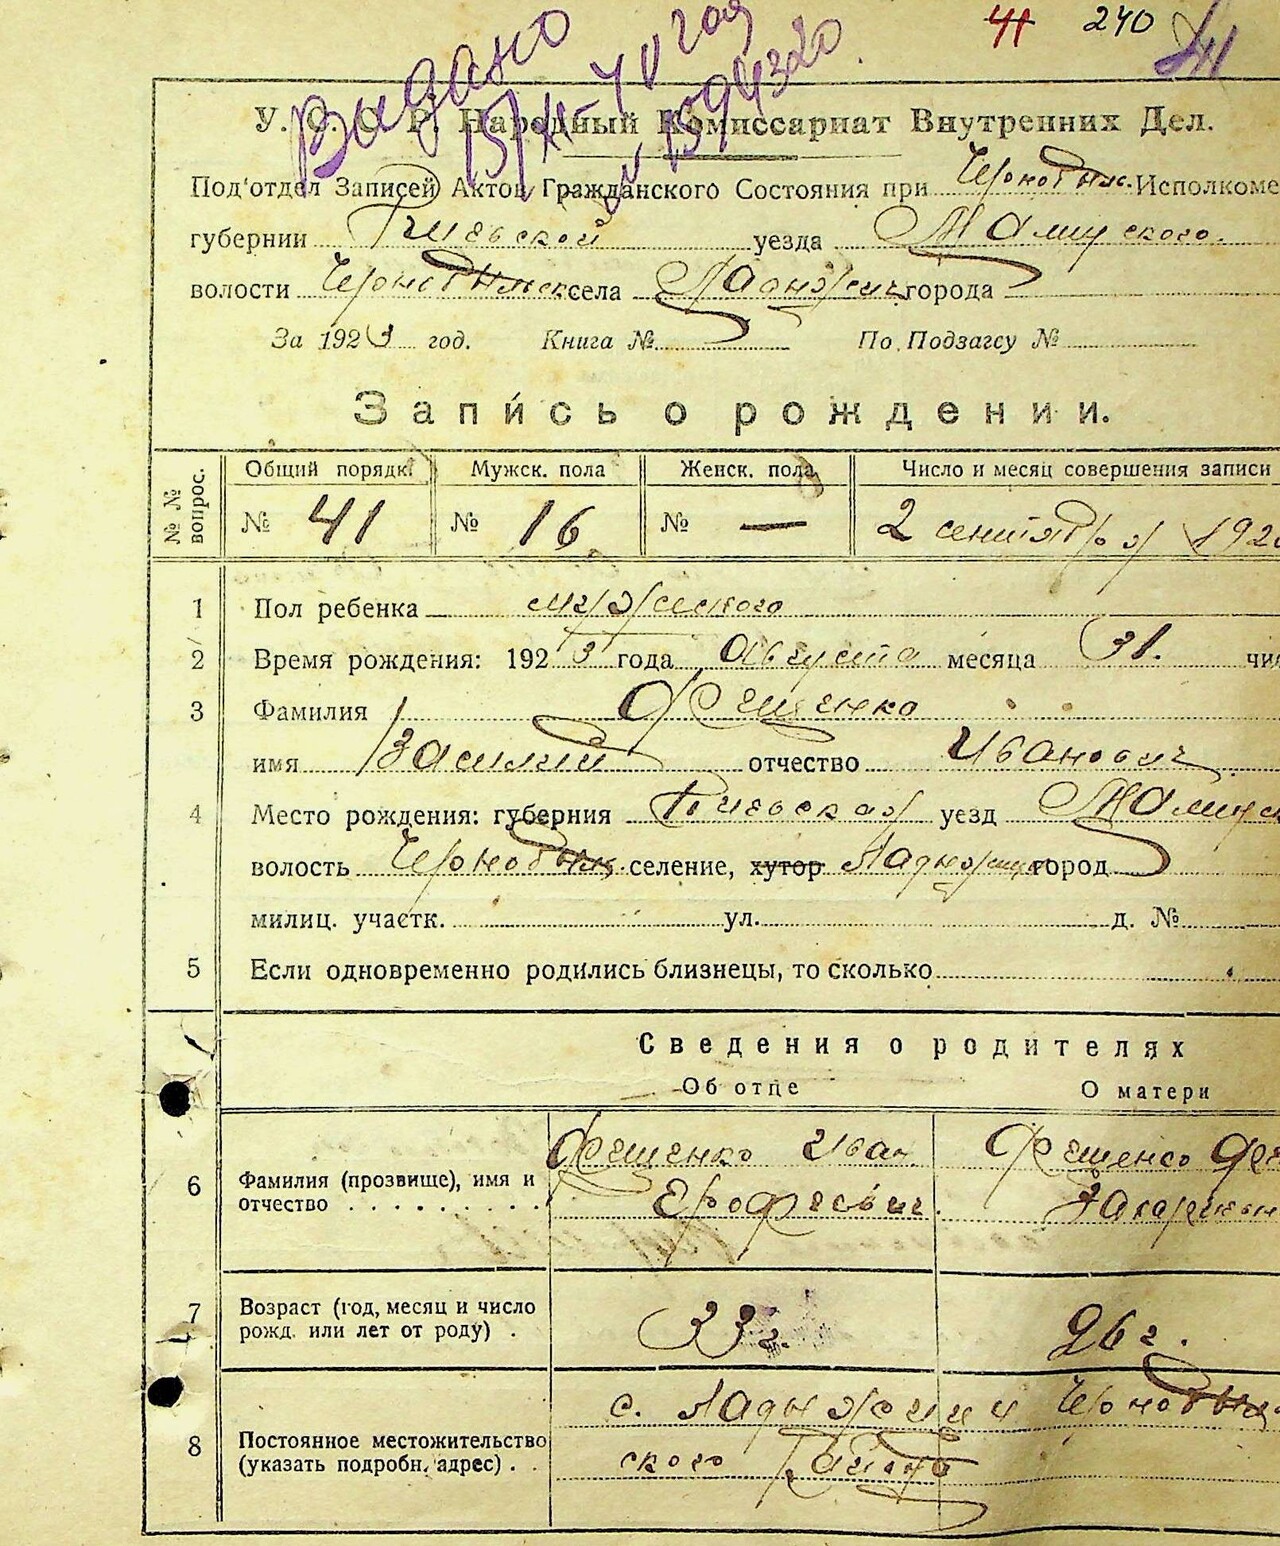 41 240 41
Видано
15/XI-40 года
У. С. С. Р. Народный Комиссариат Внутренних Дел.
Под'отдел Записей Актов Гражданского Состояния при Чернобыл. Исполкоме
губернии Киевской уезда
волости Чернобыльск села города
За 1923 год. Книга № По Подзагсу №
Запись о рождении.
№ № вопрос. Общий порядк. Мужск. пола Женск. пола Число и месяц совершения записи
№ 41 № 16 № — 2 сентября 192
1 Пол ребенка мужского
2 Время рождения: 1923 года Августа месяца 31. чис
3 Фамилия Фещенко
имя Василий отчество Иванович
4 Место рождения: губерния Киевская уезд
волость Чернобыл. селение, хутор Ладыжичи город
милиц. участк. ул. д. №
5 Если одновременно родились близнецы, то сколько
Сведения о родителях
Об отце О матери
6 Фамилия (прозвище), имя и Фещенко Иван Фещенко
отчество Ерофеевич Захарьевн
7 Возраст (год, месяц и число
рожд. или лет от роду) . 33 г. 26 г.
8 Постоянное местожительство с. Ладыжичи Чернобыль
(указать подробн. адрес) . . ского Района